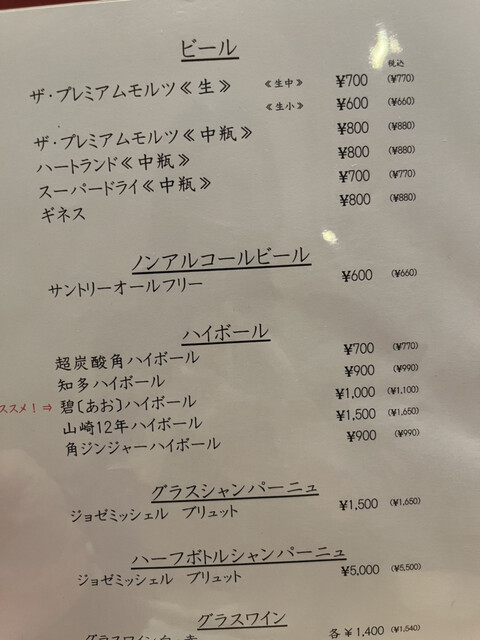 ビール
税込
ザ・プレミアムモルツ≪生≫ ≪生中≫ ¥700 (¥770)
≪生小≫ ¥600 (¥660)
ザ・プレミアムモルツ≪中瓶≫ ¥800 (¥880)
ハートランド≪中瓶≫ ¥800 (¥880)
スーパードライ≪中瓶≫ ¥700 (¥770)
ギネス ¥800 (¥880)
ノンアルコールビール
サントリーオールフリー ¥600 (¥660)
ハイボール
超炭酸角ハイボール ¥700 (¥770)
知多ハイボール ¥900 (¥990)
ススメ！⇒ 碧〔あお〕ハイボール ¥1,000 (¥1,100)
山崎12年ハイボール ¥1,500 (¥1,650)
角ジンジャーハイボール ¥900 (¥990)
グラスシャンパーニュ
ジョゼミッシェル ブリュット ¥1,500 (¥1,650)
ハーフボトルシャンパーニュ
ジョゼミッシェル ブリュット ¥5,000 (¥5,500)
グラスワイン
グラスワイン 各¥1,400 (¥1,540)